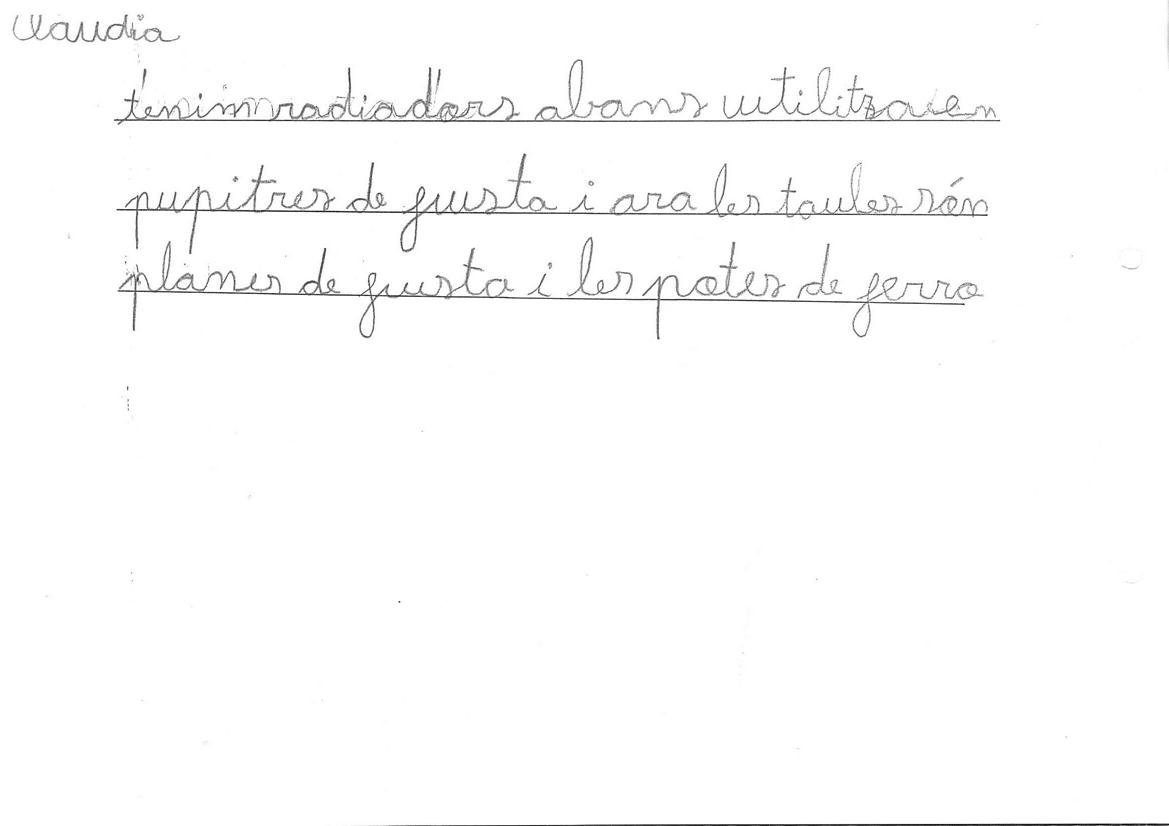 Claudia
tenim radiadors abans utilitzaven
pupitres de fusta i ara les taules són
planes de fusta i les potes de ferro